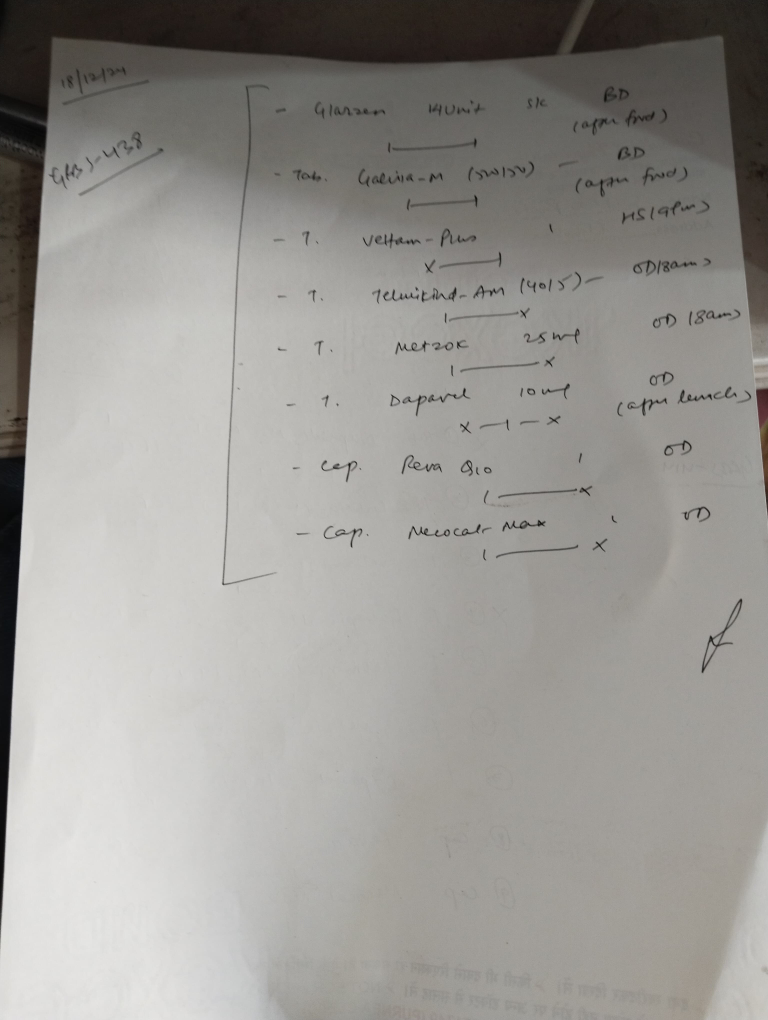 18/12/24
GRBS-438
- Glarzen 14Unit s/c BD
(after food)
- Tab. Galvira-M (500/50) - BD
(after food)
- T. Veltam-Plus HS(9pm)
X
- T. Telmikind-Am (40/5) - OD(8am)
X
- T. Metzok 25mg OD (8am)
X
- T. Daparyl 10mg OD
(after lunch)
X - 1 - X
- Cap. Reva Q10 OD
X
- Cap. Max OD
X